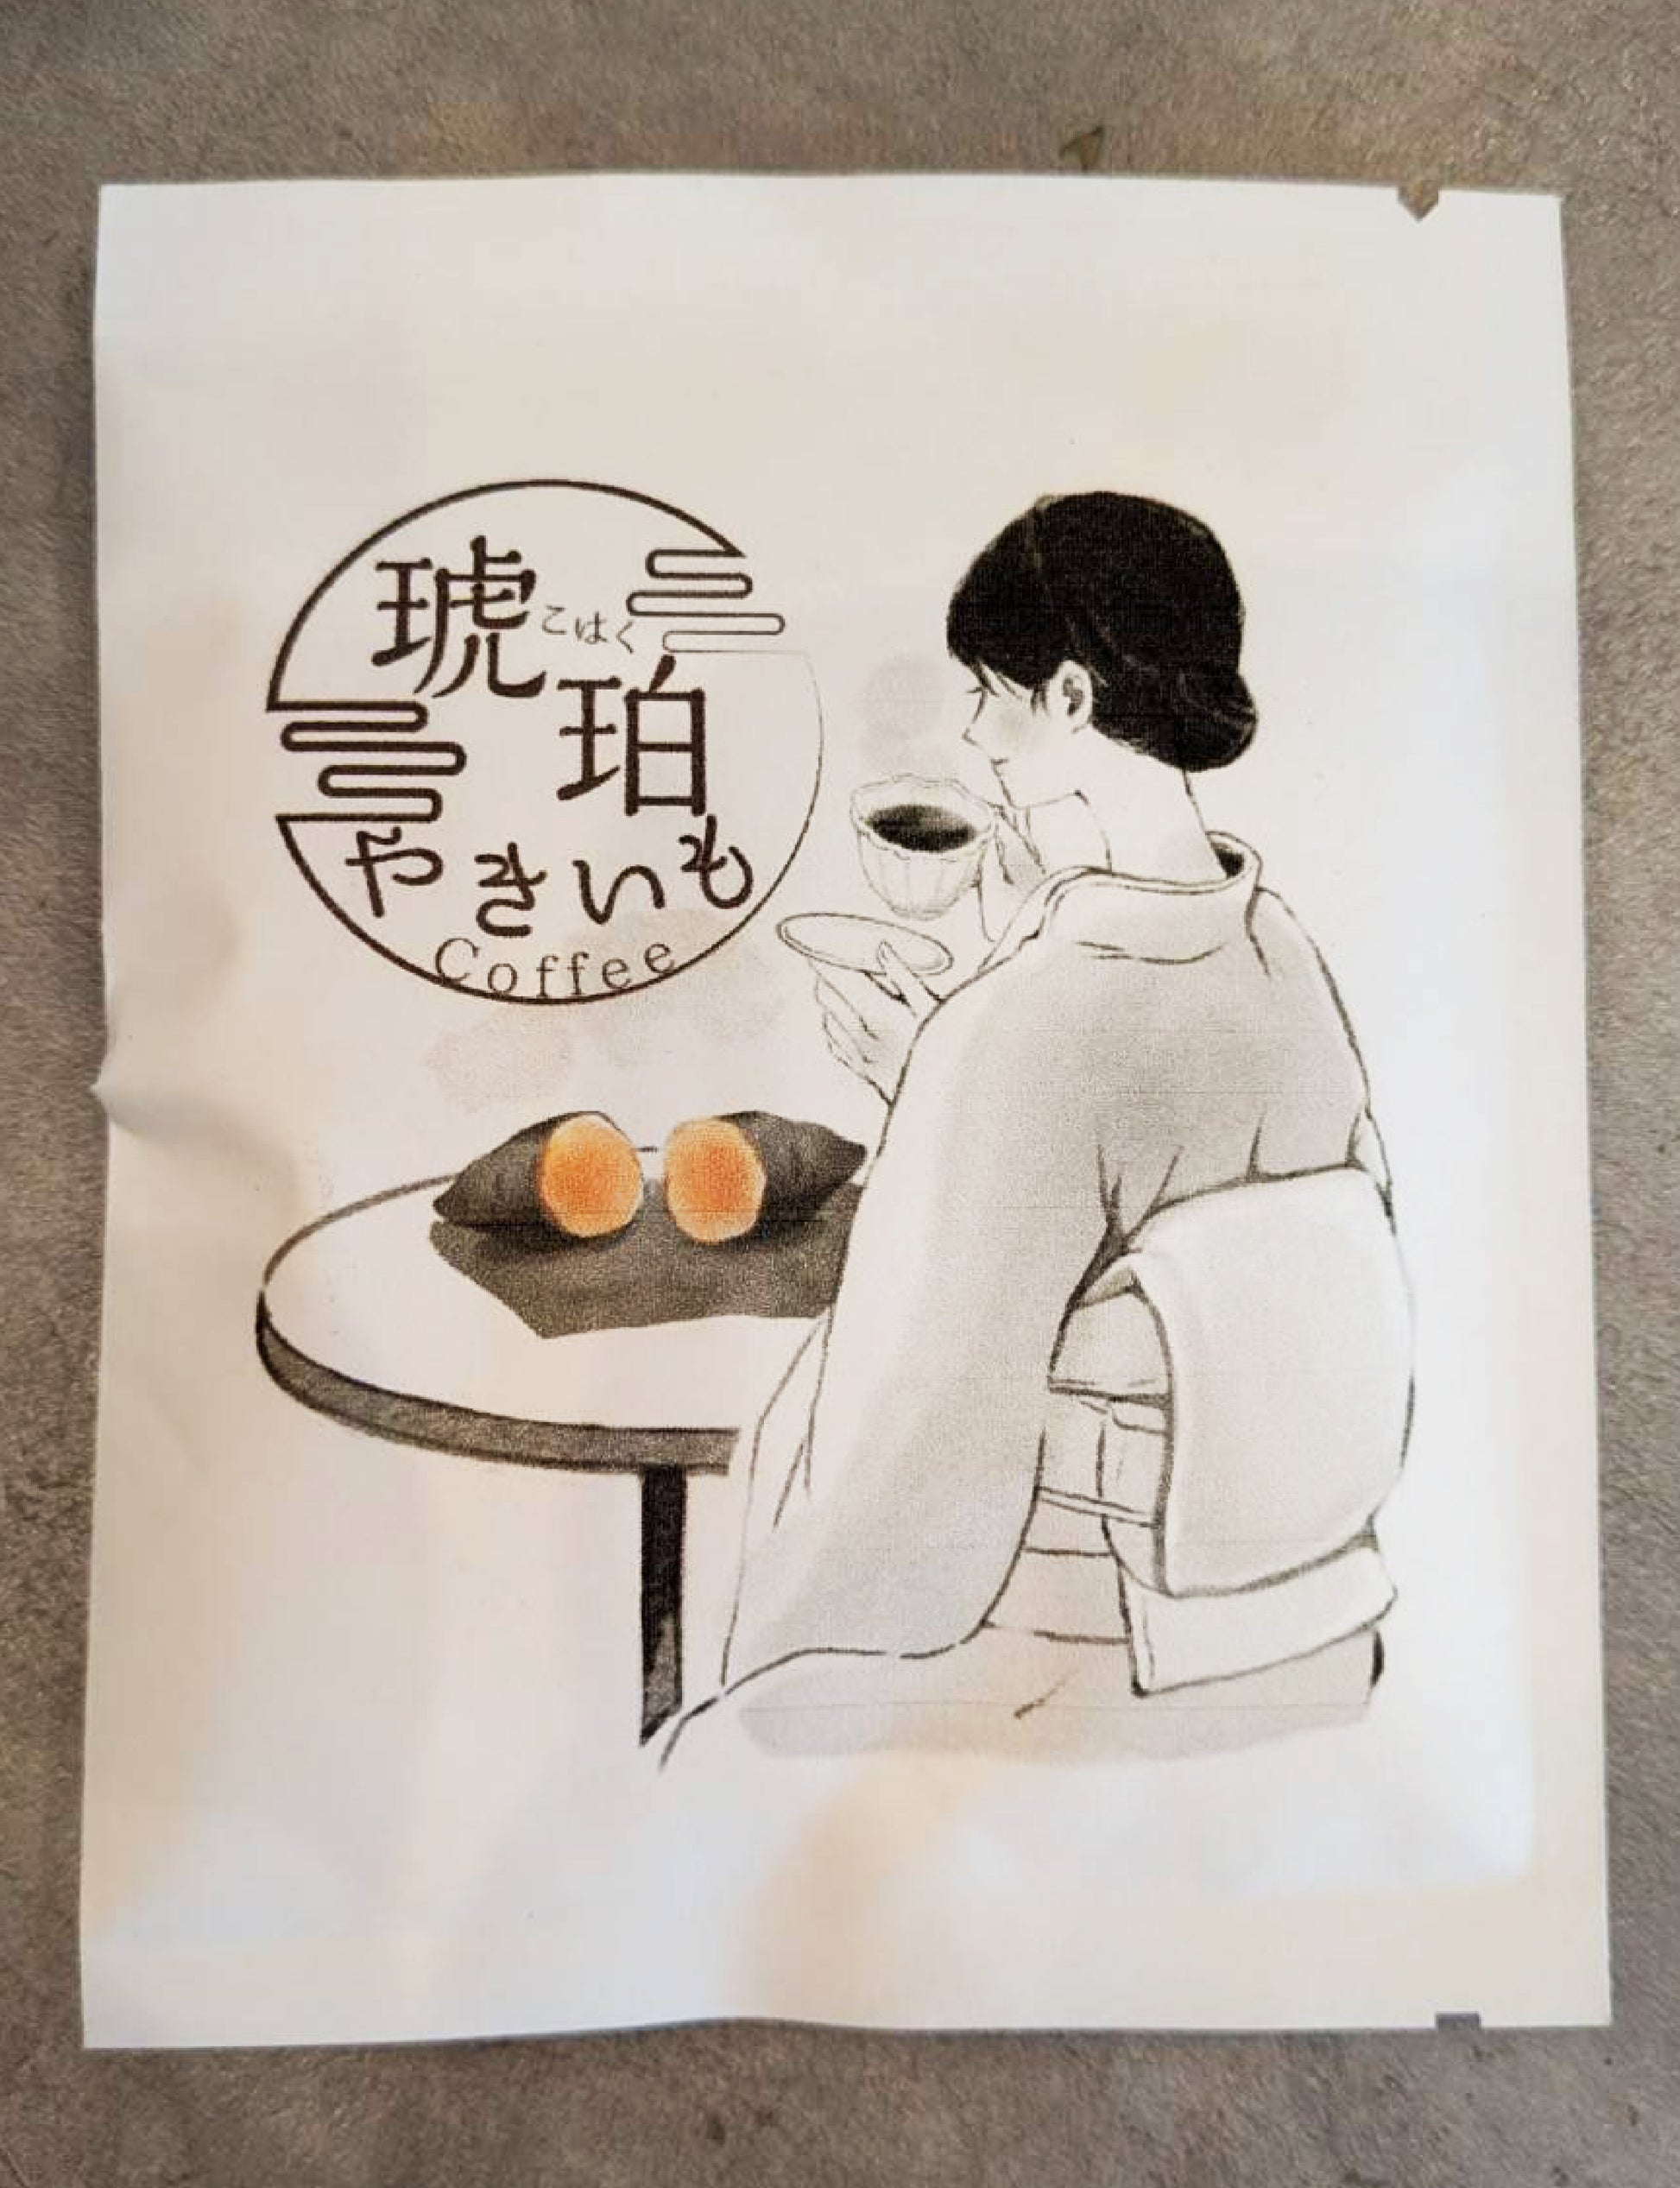 琥珀
こはく
やきいも
Coffee